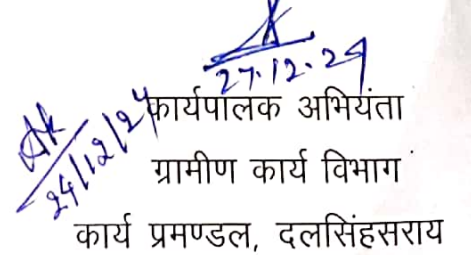 27.12.24
24/12/24
कार्यपालक अभियंता
ग्रामीण कार्य विभाग
कार्य प्रमण्डल, दलसिंहसराय